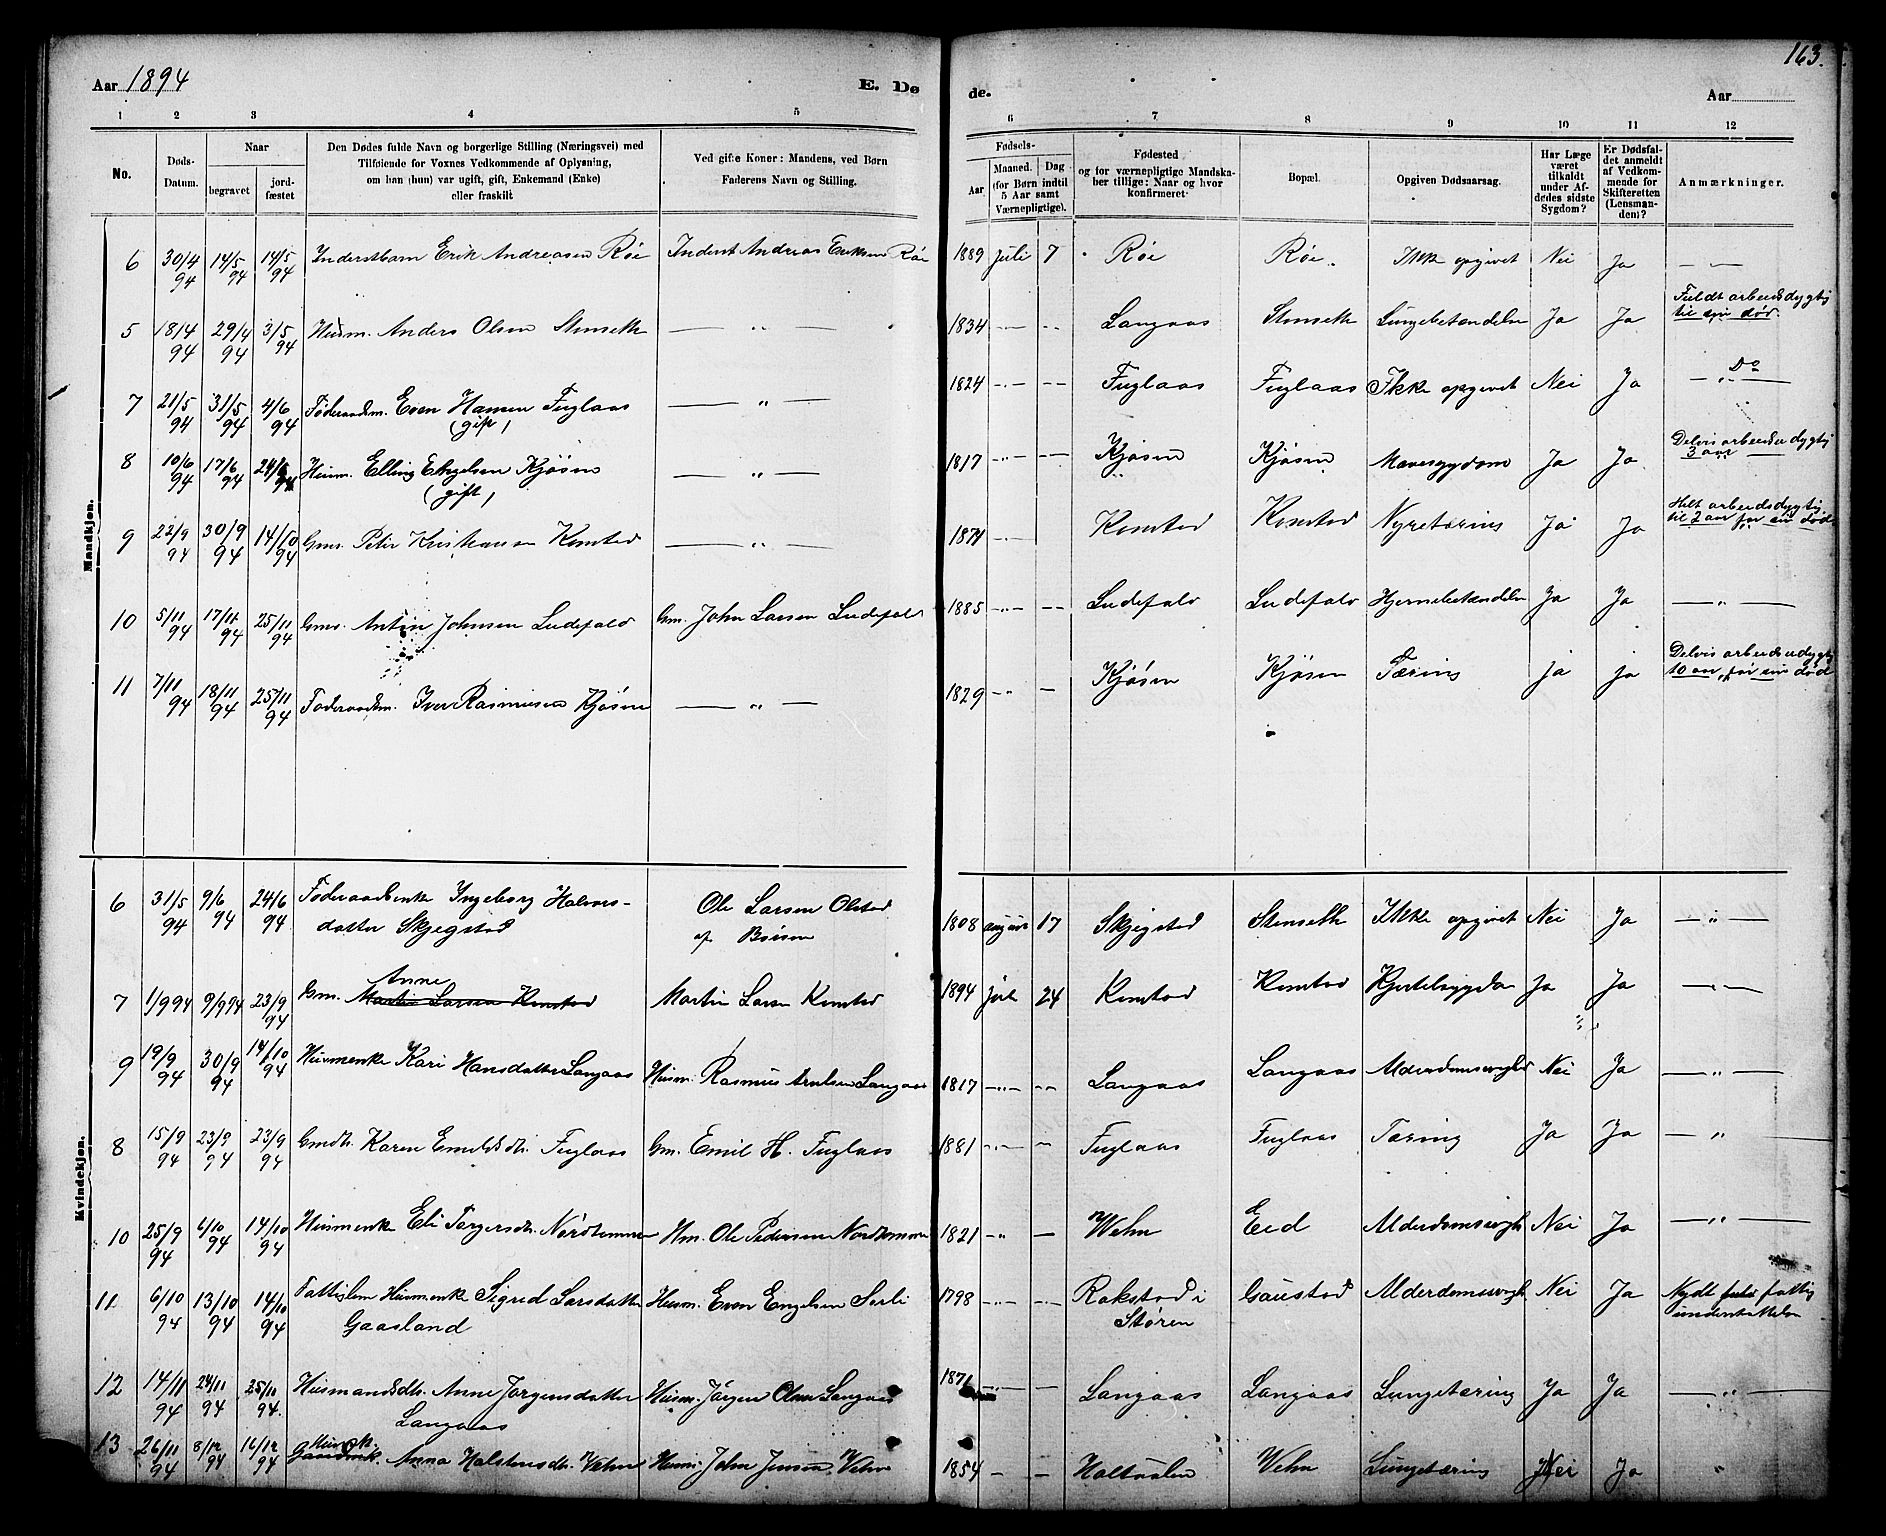 163.
Aar 1894
E. Dø
de.
Aar
1 2 3 4 5 6 7 8 9 10 11 12
No.
Døds-Datum.
Naar
begravet
jord-fæstet
Den Dødes fulde Navn og borgerlige Stilling (Næringsvei) med
Tilføiende for Voxnes Vedkommende af Oplysning,
om han (hun) var ugift, gift, Enkemand (Enke)
eller fraskilt
Ved gifte Koner: Mandens, ved Børn
Faderens Navn og Stilling.
Fødsels-
Aar
Maaned. Dag
(for Børn indtil
5 Aar samt
Værnepligtige).
Fødested
og for værnepligtige Mandska-
ber tillige: Naar og hvor
konfirmeret
Bopæl.
Opgiven Dødsaarsag.
Har Læge
været
tilkaldt
under Af-
dødes sidste
Sygdom?
Er Dødsfal-
det anmeldt
af Vedkom-
mende for
Skifteretten
(Lensman-
den)?
Anmærkninger.
Mandkjøn.
6 30/4 94 14/5 94 14/5 94 Inderstbarn Erik Andreasen Røe Inderst Andreas Eriksen Røe 1889 Juli 7 Røe Røe Ikke opgivet Nei Ja — „ —
5 18/4 94 29/4 94 3/5 94 Husm. Anders Olsen Stenseth — „ — 1834 Langaas Stenseth Lungebetændelse Ja Ja Fuldt arbeidsdygtig
til sin død.
7 21/5 94 31/5 94 4/6 94 Føderaadsm. Even Hansen Fuglaas
(gift) — „ — 1824 Fuglaas Fuglaas Ikke opgivet Nei Ja Do
8 10/6 94 17/6 94 24/6 94 Husm. Elling Engelsen Kjøsen
(gift) — „ — 1817 Kjøsen Kjøsen Mavesygdom Ja Ja Delvis arbeidsdygtig
3 aar
9 22/9 94 30/9 94 14/10 94 Gms. Peter Kristiansen Komstad — „ — 1874 Komstad Komstad Nyretæring Ja Ja Helt arbeidsdygtig
til 2 aar før sin død
10 5/11 94 17/11 94 25/11 94 Gms. Anton Johnsen Ludefald Gm. John Larsen Ludefald 1885 Ludefald Ludefald Hjernebetændelse Ja Ja — „ —
11 7/11 94 18/11 94 25/11 94 Føderaadsm. Iver Rasmussen Kjøsen — „ — 1829 Kjøsen Kjøsen Tæring ja ja Delvis arbeidsudygtig
10 aar før sin død
Kvindekjøn.
6 31/5 94 9/6 94 24/6 94 Føderaadsenke Ingeborg Halvors-
datter Skjegstad Ole Larsen Olstad
af Børsen 1808 august 17 Skjegstad Stenseth Ikke opgivet Nei Ja — „ —
7 1/9 94 9/9 94 23/9 94 Gm. Martin Larsen Komstad Anne Martin Larsen Komstad 1894 Juli 24 Komstad Komstad Kjertelsygdom Ja Ja — „ —
9 19/9 94 30/9 94 14/10 94 Husmenke Kari Hansdatter Langaas Husm. Rasmus Arntsen Langaas 1817 Langaas Langaas Alderdomssvaghed Nei Ja — „ —
8 15/9 94 23/9 94 23/9 94 Gmdtr. Karen Emilsdtr. Fuglaas Gm. Emil H. Fuglaas 1881 Fuglaas Fuglaas Tæring Ja Ja — „ —
10 25/9 94 6/10 94 14/10 94 Husmenke Eli Torgersdtr. Nordtømme Hm. Ole Pedersen Nordtømme 1821 Wehn Eid Alderdomssvagh Nei Ja — „ —
11 6/10 94 13/10 94 14/10 94 Fattiglem Husmenke Sigrid Larsdatter
Gaasland Husm. Even Engelsen Sorli 1798 Rokstad i
Støren Gaustad Alderdomssvagh Nei Ja Nydt fattig
understøttelse
12 14/11 94 24/11 94 25/11 94. Husmandsdtr. Anne Jørgensdatter
Langaas Husm. Jørgen Olsen Langaas 1871 Langaas Langaas Lungetæring Ja Ja — „ —
13 26/11 94 8/12 94 16/12 94 Husmk. Gaardmk. Anna Halstensdtr. Wehn Husm. John Jensen Wehn 1854 Holtaalen Wehn Lungetæring Nei Ja „